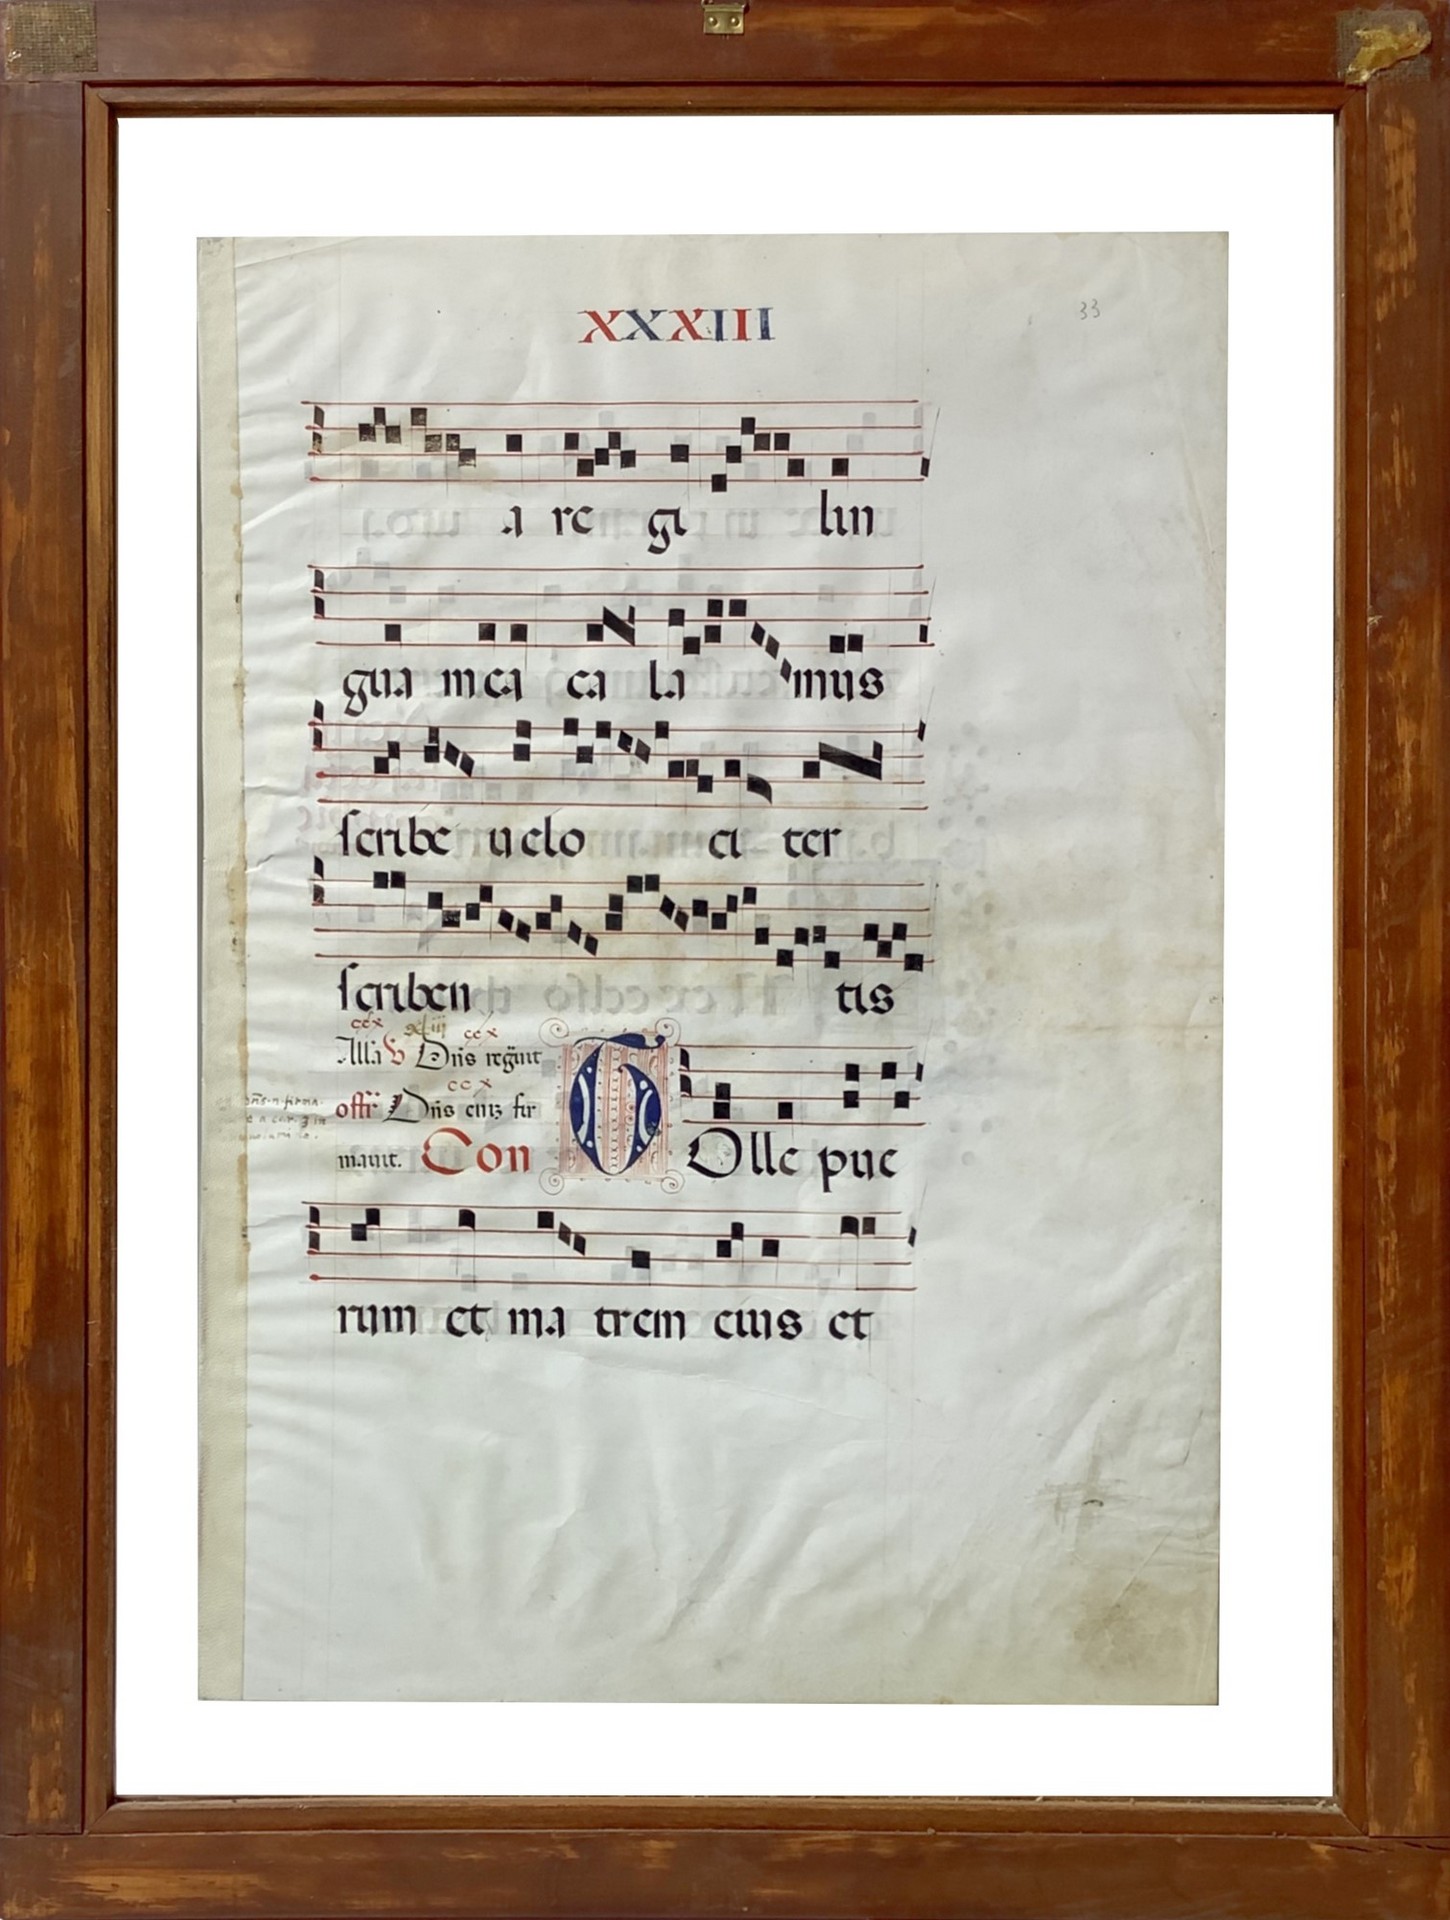 XXXIII 33
a re gi lin
gua mea ca la mus
scribe uelo ci ter
scriben tis
ccx xliii ccx
Alla V Dñs regñt
ccx
offr Dñs eniz fir
mauit. Con TOlle pue
rum et ma trem eius et